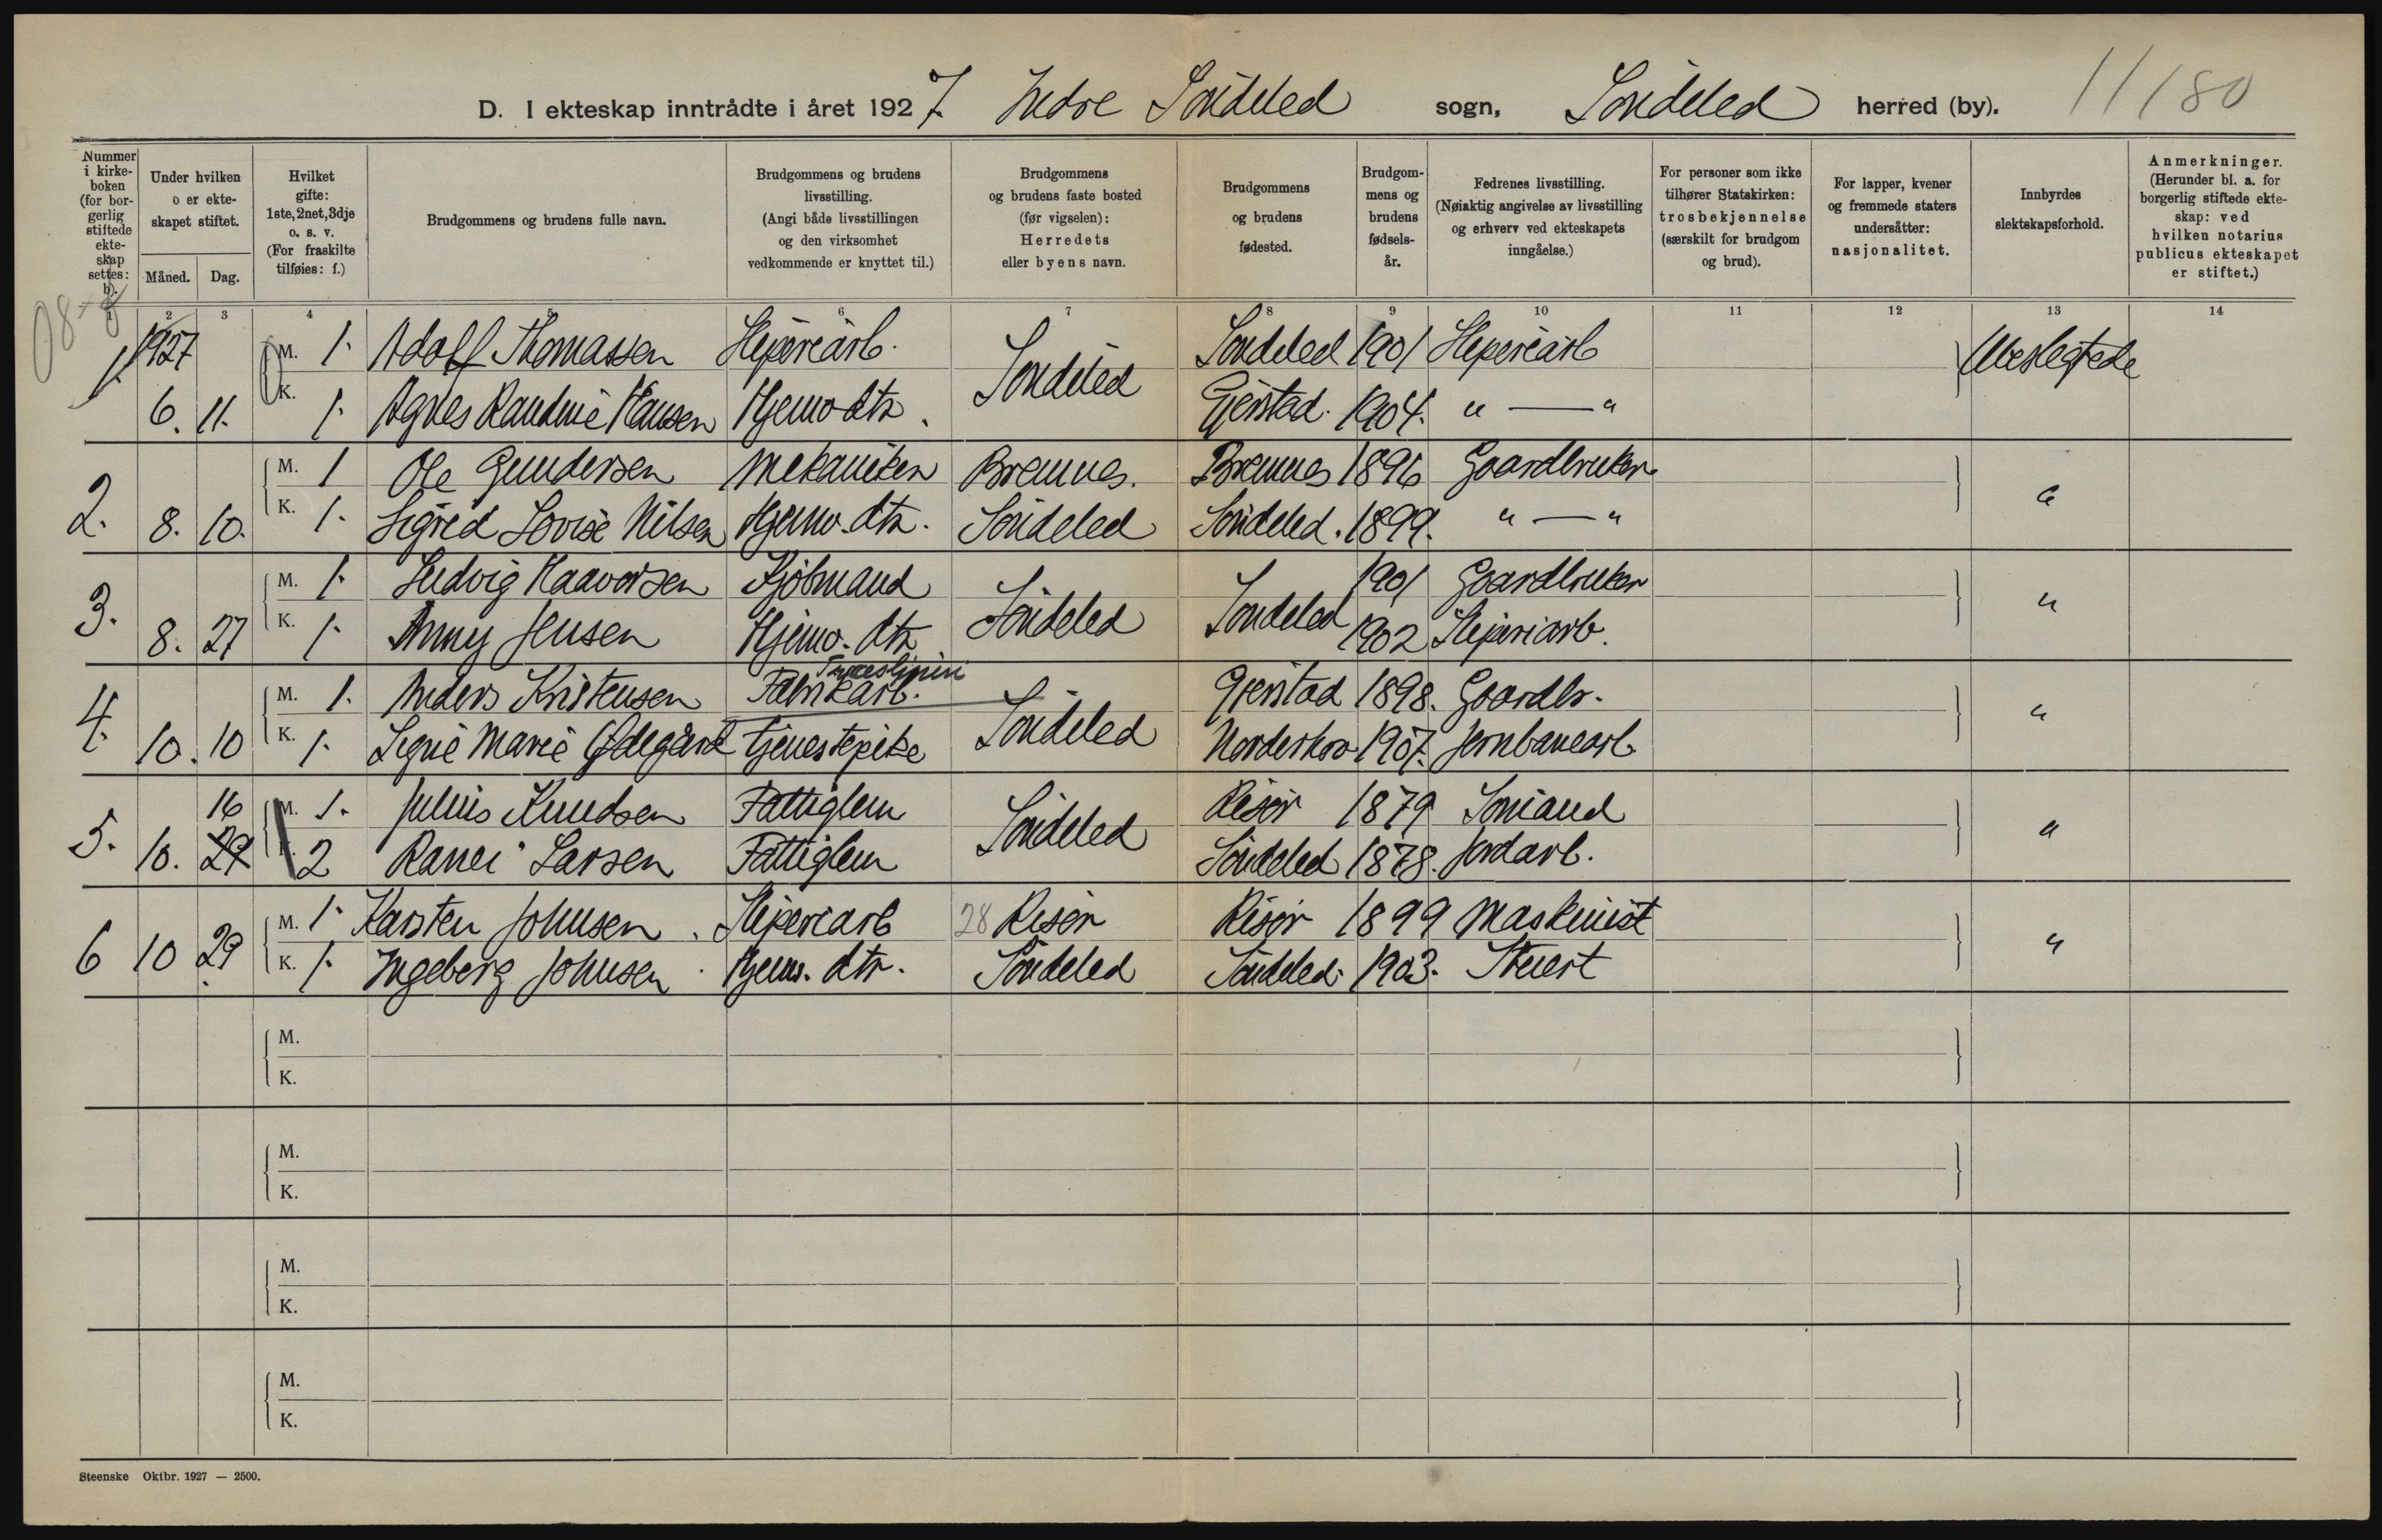 D. I ekteskap inntrådte i året 1927 Indre Söndeled sogn, Söndeled herred (by). 11/80
Nummer i kirkeboken (for borgerlig stiftede ekteskap settes: b).
Under hvilken o er ekteskapet stiftet.
Måned. Dag.
Hvilket gifte: 1ste, 2net, 3dje o. s. v. (For fraskilte tilføies: f.)
Brudgommens og brudens fulle navn.
Brudgommens og brudens livsstilling. (Angi både livsstillingen og den virksomhet vedkommende er knyttet til.)
Brudgommens og brudens faste bosted (før vigselen): Herredets eller byens navn.
Brudgommens og brudens fødested.
Brudgommens og brudens fødselsår.
Fedrenes livsstilling. (Nøiaktig angivelse av livsstilling og erhverv ved ekteskapets inngåelse.)
For personer som ikke tilhører Statskirken: trosbekjennelse (særskilt for brudgom og brud).
For lapper, kvener og fremmede staters undersåtter: nasjonalitet.
Innbyrdes slektskapsforhold.
Anmerkninger. (Herunder bl. a. for borgerlig stiftede ekteskap: ved hvilken notarius publicus ekteskapet er stiftet.)
1 2 3 4 5 6 7 8 9 10 11 12 13 14
1. 1927 M. 1. Adolf Thomassen Sliperiarb. Söndeled Söndeled 1901 Sliperiarb Ubeslegtede
6. 11. K. 1. Agnes Randine Hansen Hjemv. dtr. Gjerstad. 1904. " — "
2. M. 1 Ole Gundersen Mekaniker Bremnes. Bremnes 1896 Gaardbruker "
8. 10. K. 1. Sigrid Lovise Nilsen Hjemv. dtr. Söndeled Söndeled. 1899. " — "
3. M. 1. Ludvig Haavorsen Kjöbmand Söndeled Söndeled 1901 Gaardbruker "
8. 27 K. 1. Anny Jensen Hjemv. dtr 1902 Sliperiarb.
Træsliperi
4. M. 1. Anders Kristensen Fabrikarb. Söndeled Gjerstad 1898. Gaardbr. "
10. 10 K. 1. Signe Marie Ødegård Tjenestepike Norderhov 1907. Jernbanearb.
5. 16 M. 1. Julius Knudsen Fattiglem Söndeled Risör 1879 Sömand "
10. 29 K. 2 Ranei Larsen Fattiglem Söndeled 1878. Jordarb.
6 10 29 M. 1. Karsten Johnsen Sliperiarb 28 Risör Risör 1899 Maskinist "
K. 1. Ingeborg Johnsen Hjemv. dtr. Söndeled Söndeled 1903. Stuert
M.
K.
M.
K.
M.
K.
M.
K.
Steenske Oktbr. 1927 — 2500.